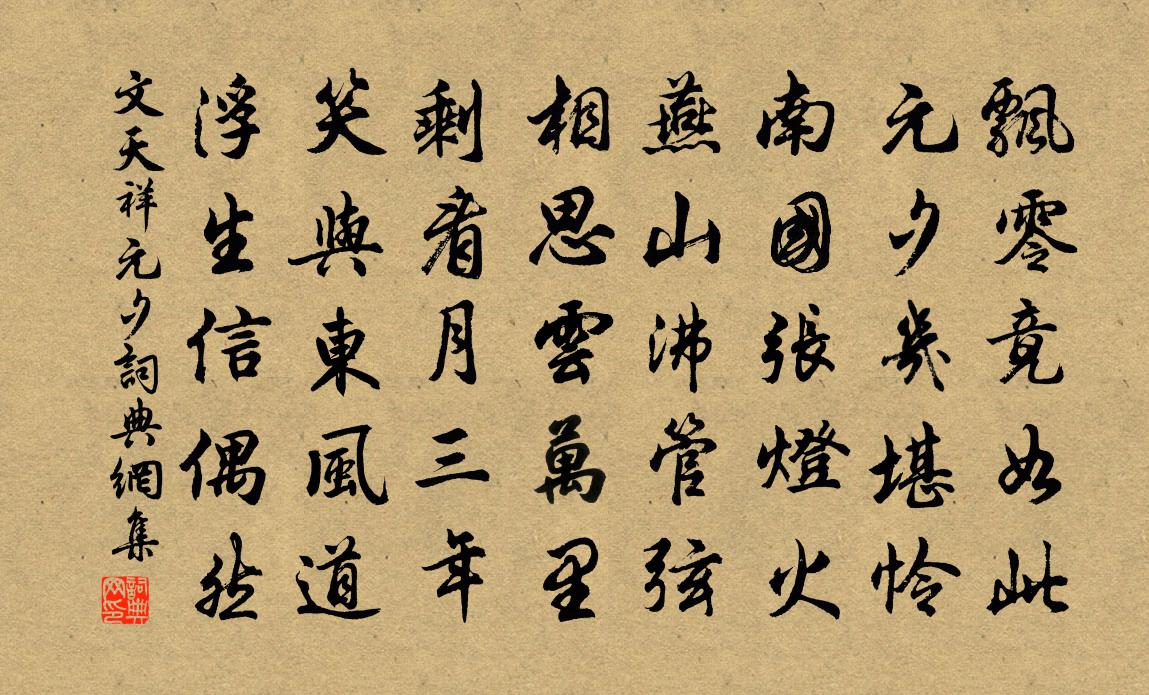 飄零竟如此
元夕幾堪憐
南國張燈火
燕山沸管弦
相思雲萬里
剩看月三年
笑與東風道
浮生信偶然
文天祥元夕詞典網集
詞典網印